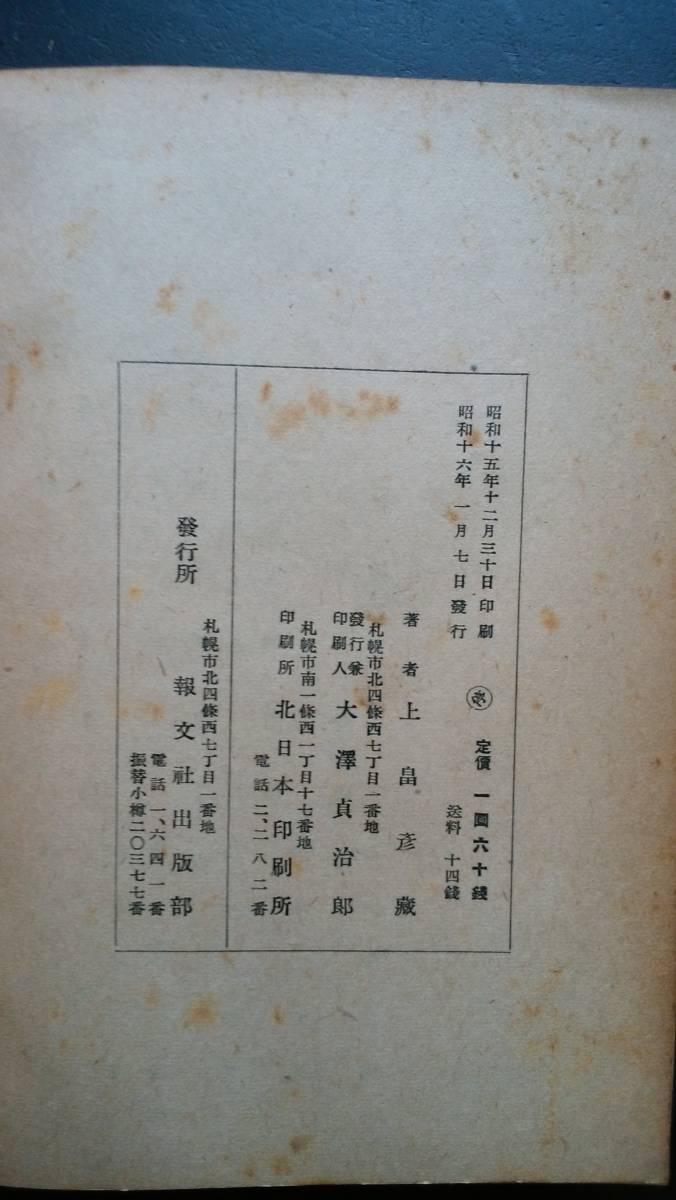 昭和十五年十二月三十日印刷
昭和十六年 一月七日發行
定價 一圓六十錢
送料 十四錢
著者 上畠彦藏
札幌市北四條西七丁目一番地
發行兼
印刷人 大澤貞治郎
札幌市南一條西一丁目十七番地
印刷所 北日本印刷所
電話 二、二八二番
發行所
札幌市北四條西七丁目一番地
報文社出版部
電話一、六四一番
振替小樽二〇三七七番